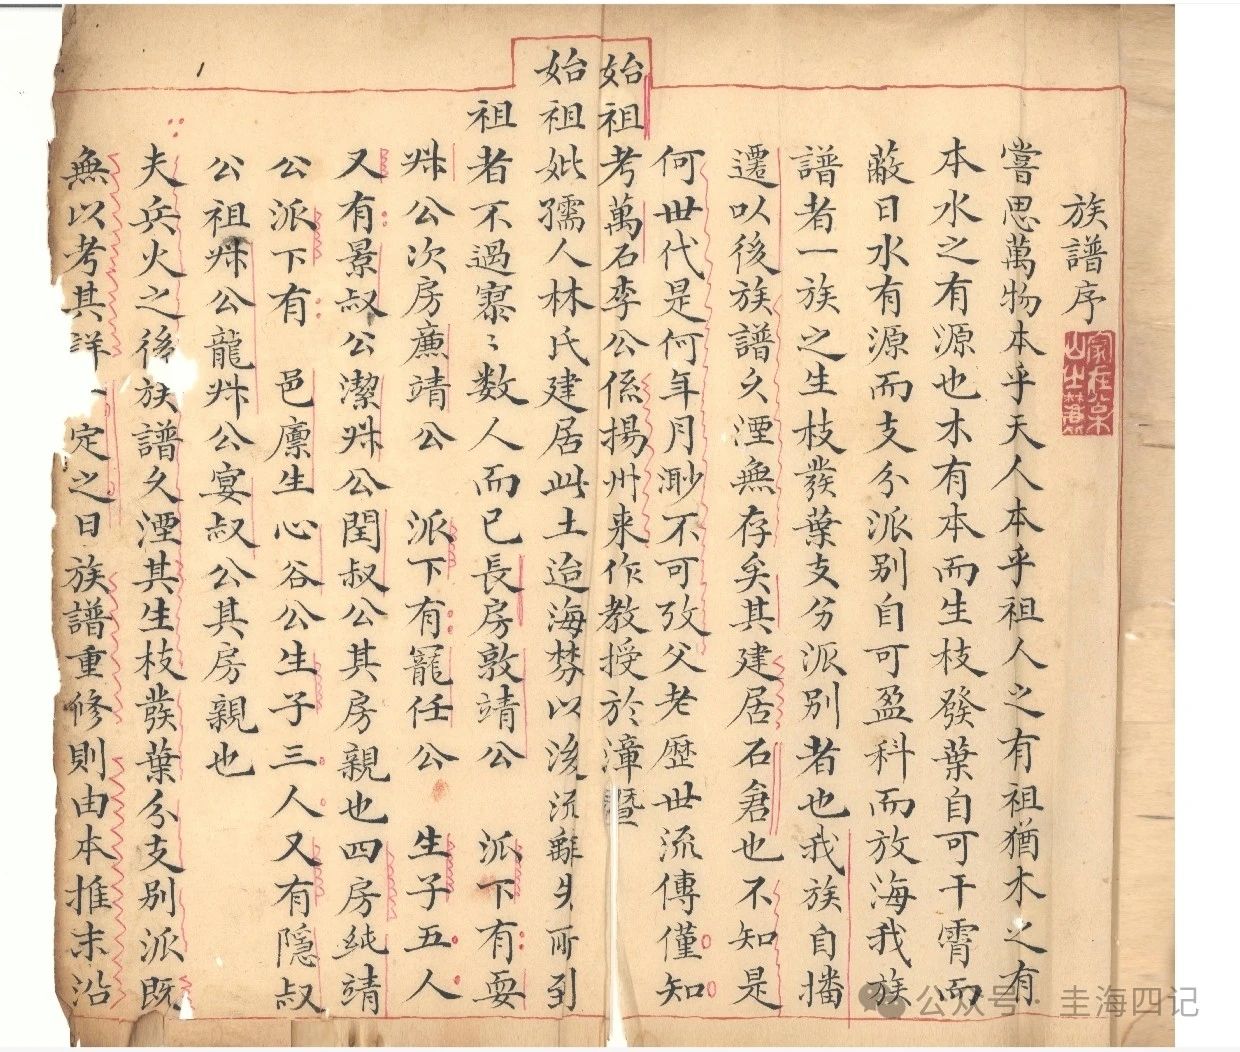 族譜序
嘗思萬物本乎天人本乎祖人之有祖猶木之有
本水之有源也木有本而生枝發葉自可干霄而
蔽日水有源而支分派別自可盈科而放海我族
譜者一族之生枝發葉支分派別者也我族自播
遷以後族譜久湮無存矣其建居石倉也不知是
何世代是何年月渺不可攷父老歷世流傳僅知
始祖考萬石李公係揚州来作教授於漳暨
始祖妣孺人林氏建居此土迨海棼以後流離失所到
祖者不過寥〻数人而已長房敦靖公 派下有耍
烌公次房廉靖公 派下有罷任公 生子五人
又有景叔公潔烌公閏叔公其房親也四房純靖
公派下有 邑廩生心谷公生子三人又有隱叔
公祖烌公龍烌公宴叔公其房親也
夫兵火之後族譜久湮其生枝發葉分支別派既
無以考其詳 定之日族譜重修則由本推末沿
公众号 · 圭海四记